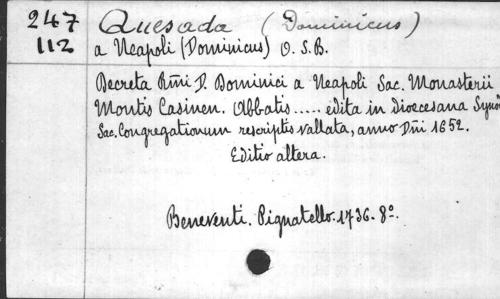 247 Quesada (Dominicus)
112 a Neapoli (Dominicus) O. S. B.
Decreta Rmi D. Dominici a Neapoli Sac. Monasterii
Montis Casinen. Abbatis ..... edita in Dioecesana Syno
Sac. Congregationum rescriptis vallata, anno Dni 1652.
Editio altera.
Beneventi. Pignatello. 1736. 8º.